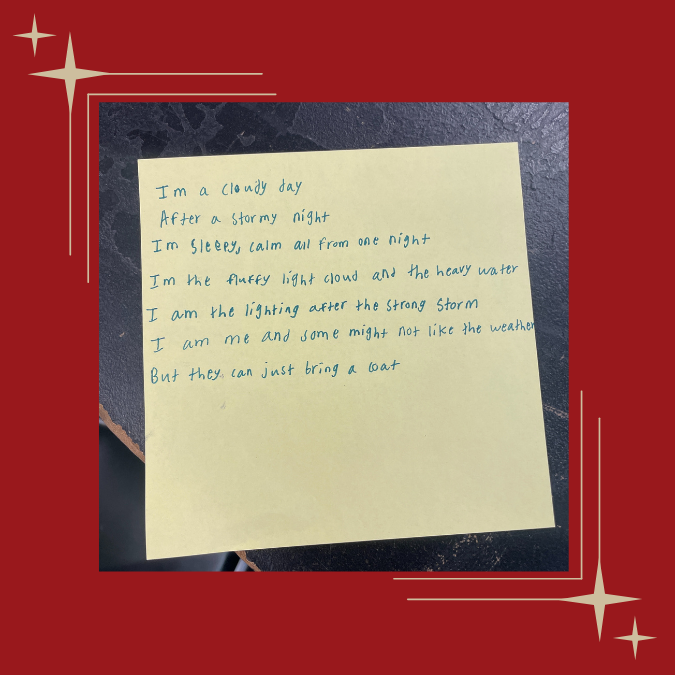 Im a cloudy day
After a stormy night
Im sleepy, calm all from one night
Im the fluffy light cloud and the heavy water
I am the lighting after the strong storm
I am me and some might not like the weather
But they can just bring a coat